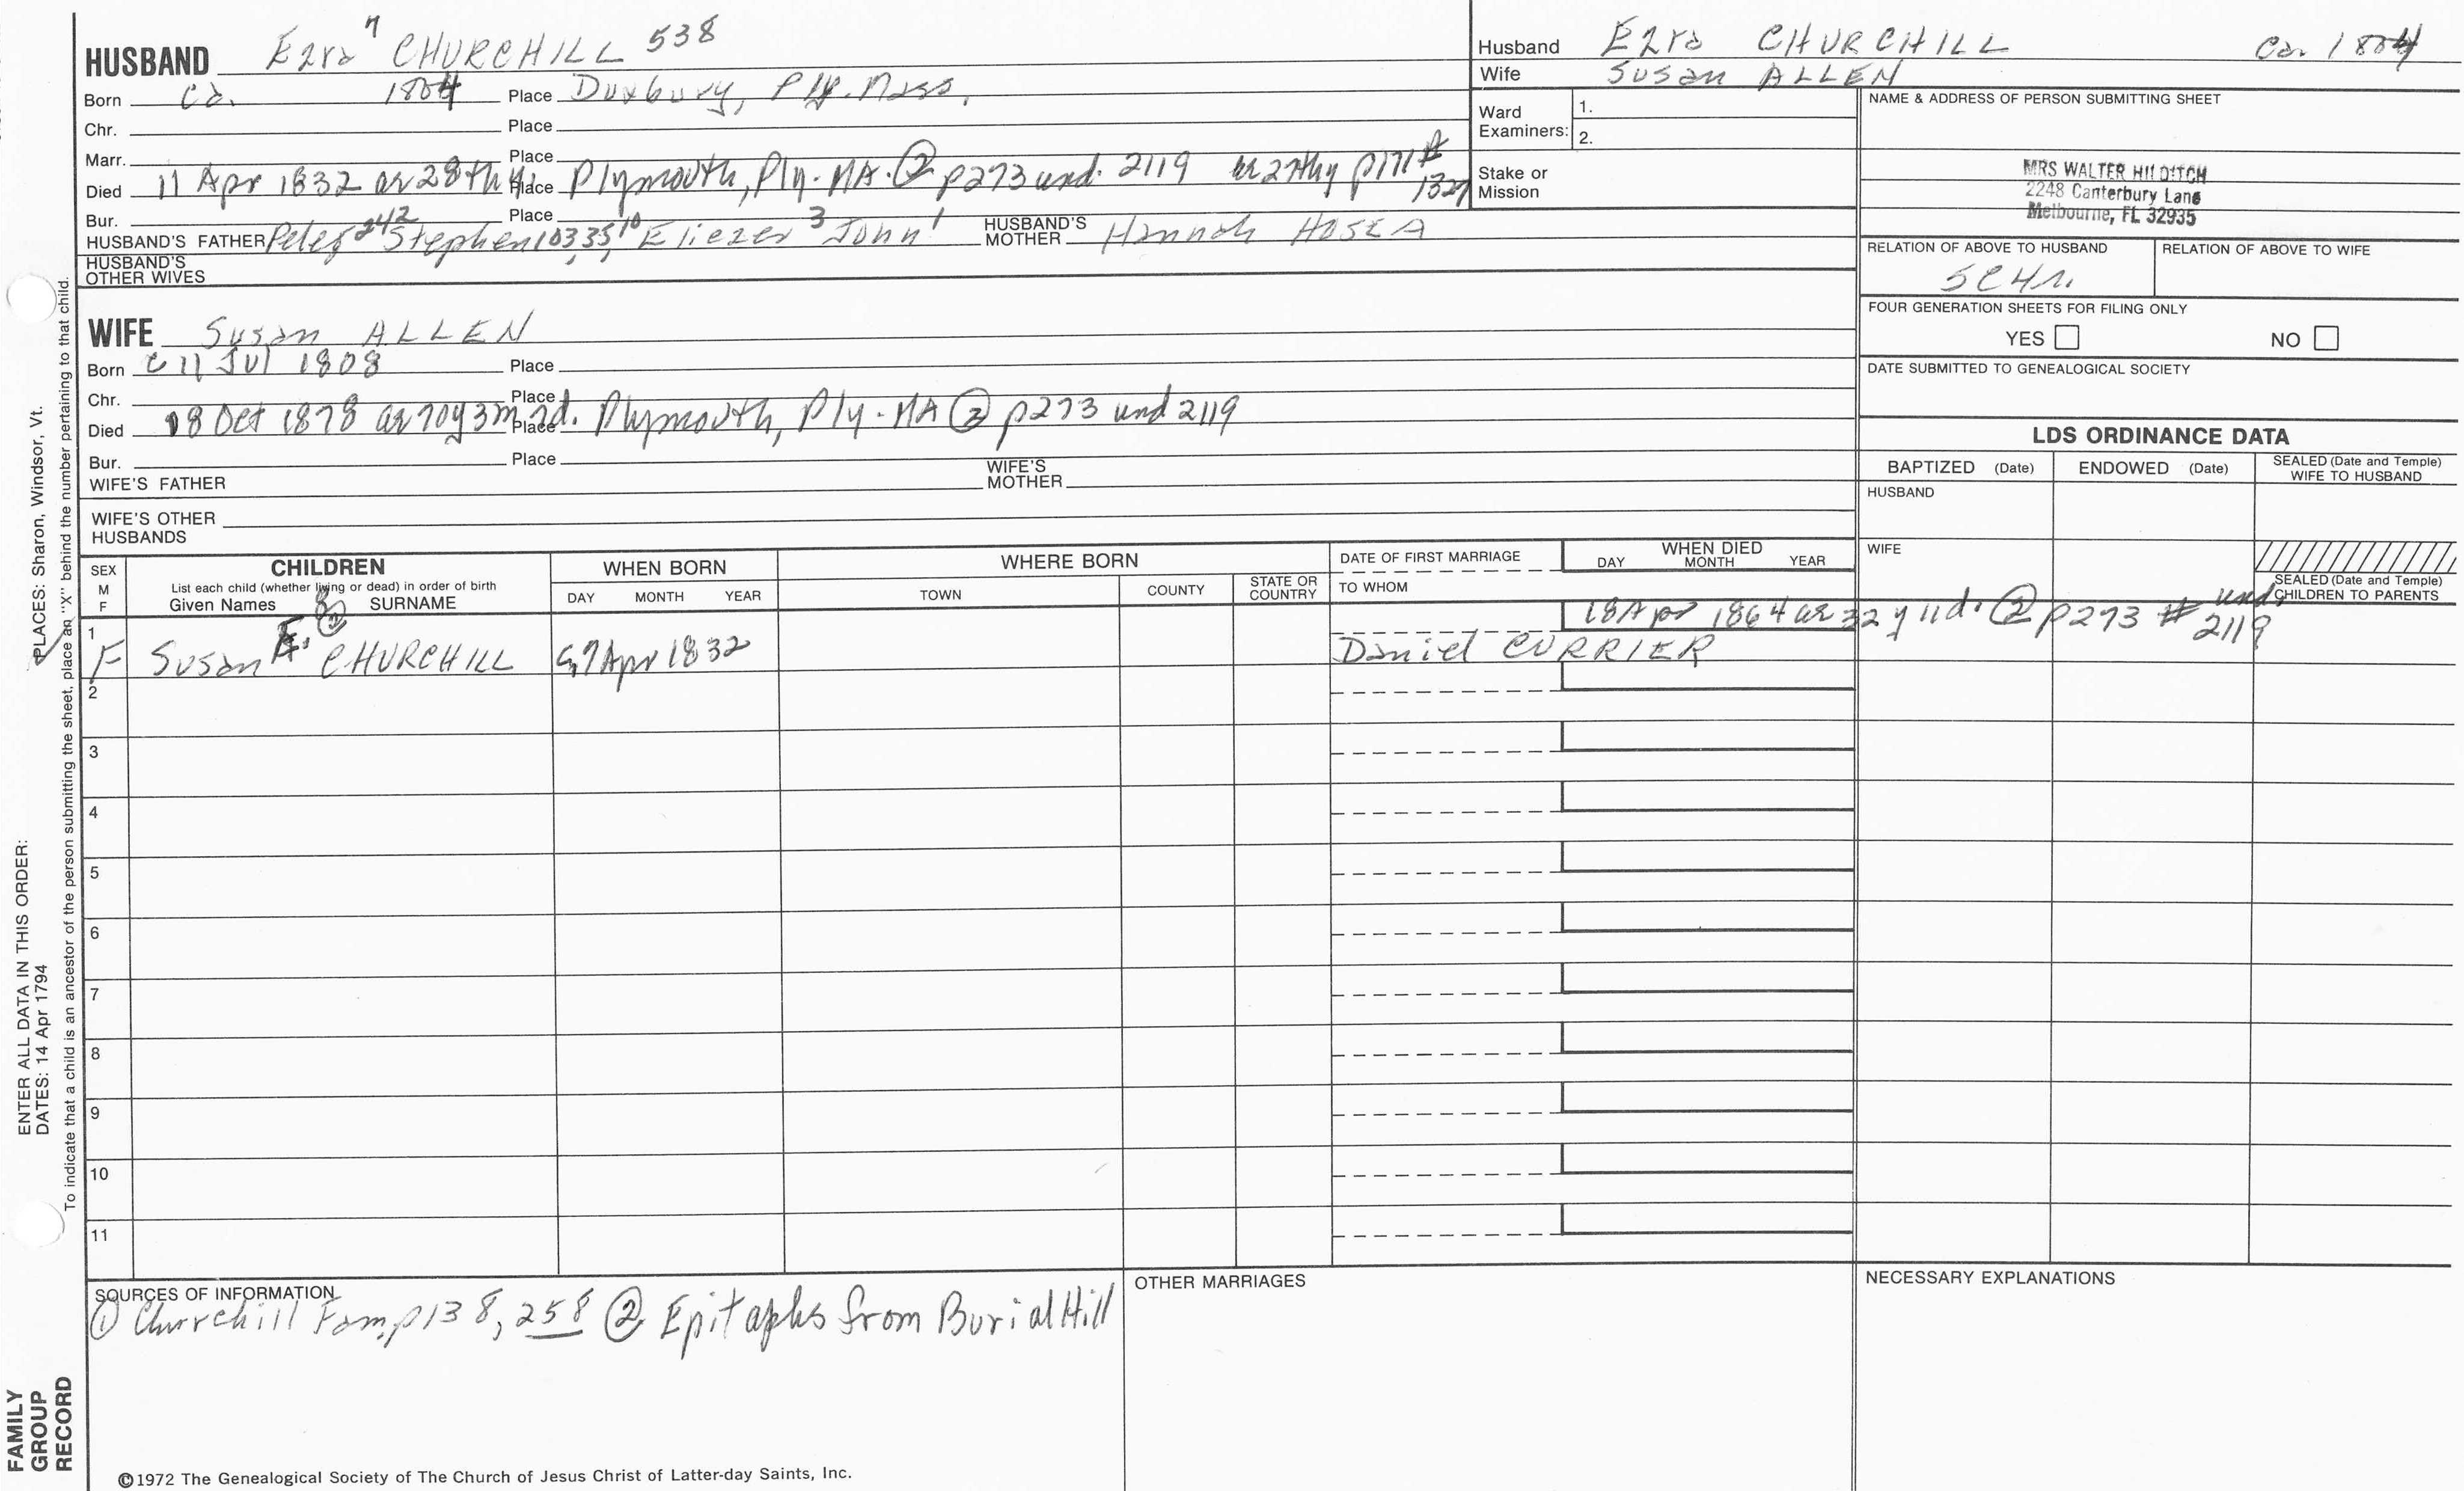 HUSBAND Ezra 7 CHURCHILL 538
Born ca. 1804 Place Duxbury, Ply. Mass.
Chr. Place
Marr. Place
Died 11 Apr 1832 ae 28th y. Place Plymouth, Ply-MA. ② p273 und. 2119 ae 27thy p171 # 1327
Bur. Place
HUSBAND'S FATHER Peter 242 Stephen 103,35,10 Eliezer 3 John 1 HUSBAND'S MOTHER Hannah HOSEA
HUSBAND'S OTHER WIVES
WIFE Susan ALLEN
Born c 11 Jul 1808 Place
Chr. Place
Died 18 Oct 1878 ae 70y 3m 7d. Place Plymouth, Ply-MA ② p273 und 2119
Bur. Place
WIFE'S FATHER WIFE'S MOTHER
WIFE'S OTHER HUSBANDS
Husband Ezra CHURCHILL Ca. 1804
Wife Susan ALLEN
Ward Examiners: 1.
2.
Stake or Mission
NAME & ADDRESS OF PERSON SUBMITTING SHEET
MRS WALTER HILDITCH
2248 Canterbury Lane
Melbourne, FL 32935
RELATION OF ABOVE TO HUSBAND RELATION OF ABOVE TO WIFE
5C4r.
FOUR GENERATION SHEETS FOR FILING ONLY
YES NO
DATE SUBMITTED TO GENEALOGICAL SOCIETY
LDS ORDINANCE DATA
BAPTIZED (Date) ENDOWED (Date) SEALED (Date and Temple) WIFE TO HUSBAND
HUSBAND
WIFE
SEALED (Date and Temple) CHILDREN TO PARENTS
SEX M F
CHILDREN
List each child (whether living or dead) in order of birth
Given Names SURNAME
WHEN BORN
DAY MONTH YEAR
WHERE BORN
TOWN COUNTY STATE OR COUNTRY
DATE OF FIRST MARRIAGE
TO WHOM
WHEN DIED
DAY MONTH YEAR
18 Apr 1864 ae 32 y 11d. ② p273 # und. 2119
1 F Susan F. ② CHURCHILL c 7 Apr 1832 Daniel CURRIER
2
3
4
5
6
7
8
9
10
11
SOURCES OF INFORMATION
① Churchill Fam, p138, 258 ② Epitaphs from Burial Hill
OTHER MARRIAGES
NECESSARY EXPLANATIONS
©1972 The Genealogical Society of The Church of Jesus Christ of Latter-day Saints, Inc.
FAMILY GROUP RECORD
ENTER ALL DATA IN THIS ORDER:
DATES: 14 Apr 1794
PLACES: Sharon, Windsor, Vt.
To indicate that a child is an ancestor of the person submitting the sheet, place an "X" behind the number pertaining to that child.